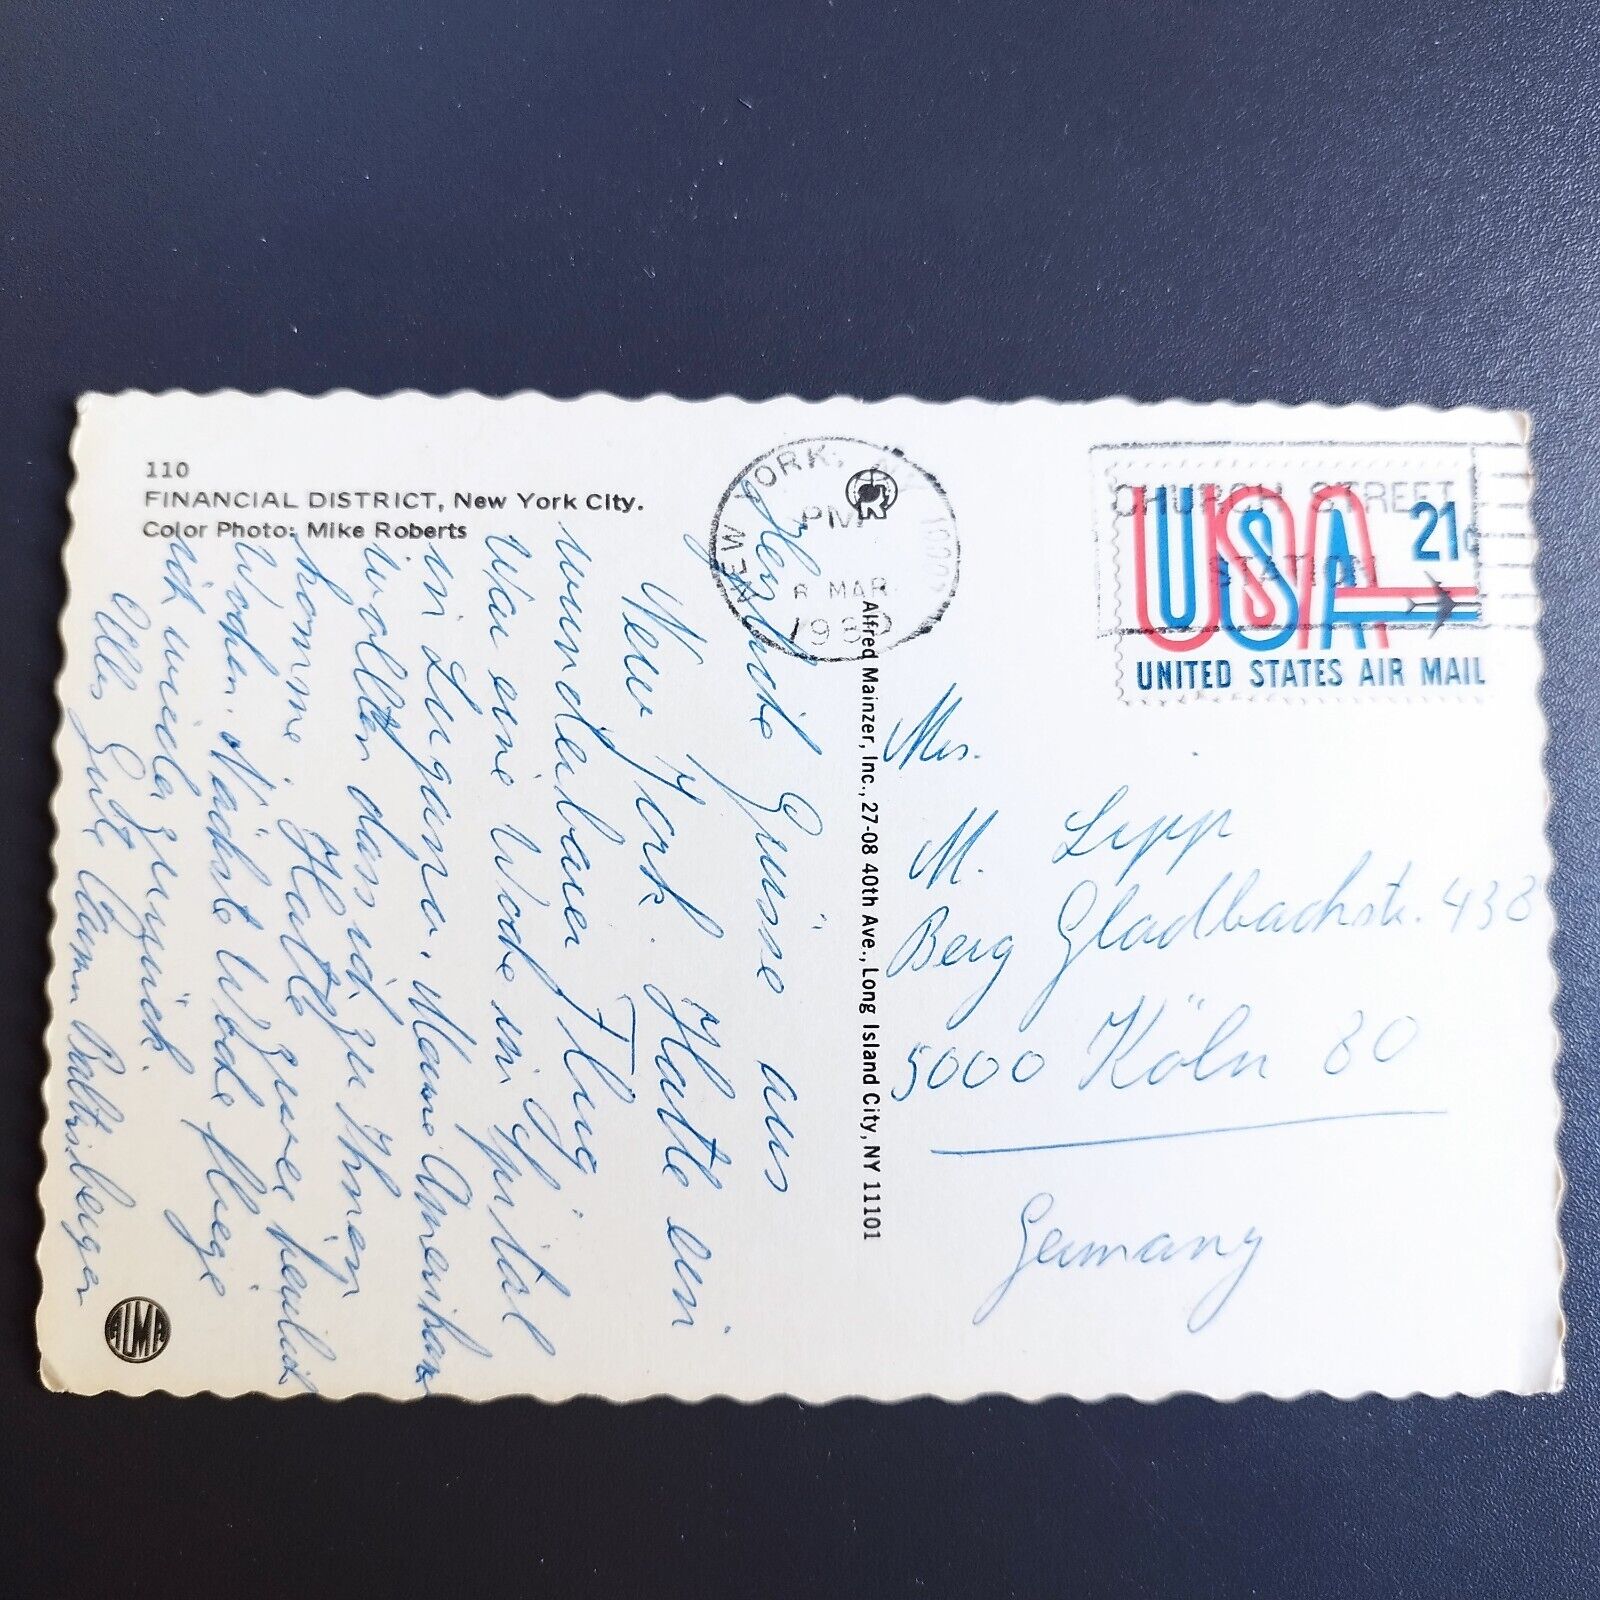 110
FINANCIAL DISTRICT, New York City.
Color Photo: Mike Roberts
Herzliche Grüsse aus
New York. Hatte ein
wunderbarer Flug
War eine Woche im Spital
in Lugano. Meine Amerikaner
wollten dass ich zu Ihnen
komme. Hatte
Wochen. Nächste Woche fliege
ich wieder zurück.
Alles Gute
Alfred Mainzer, Inc., 27-08 40th Ave., Long Island City, NY 11101
NEW YORK, NY
PM
MAR
CHURCH STREET
STATION
USA 21c
UNITED STATES AIR MAIL
Mrs.
M. Lipp
Berg Gladbachstr. 438
5000 Köln 80
Germany
ALMA